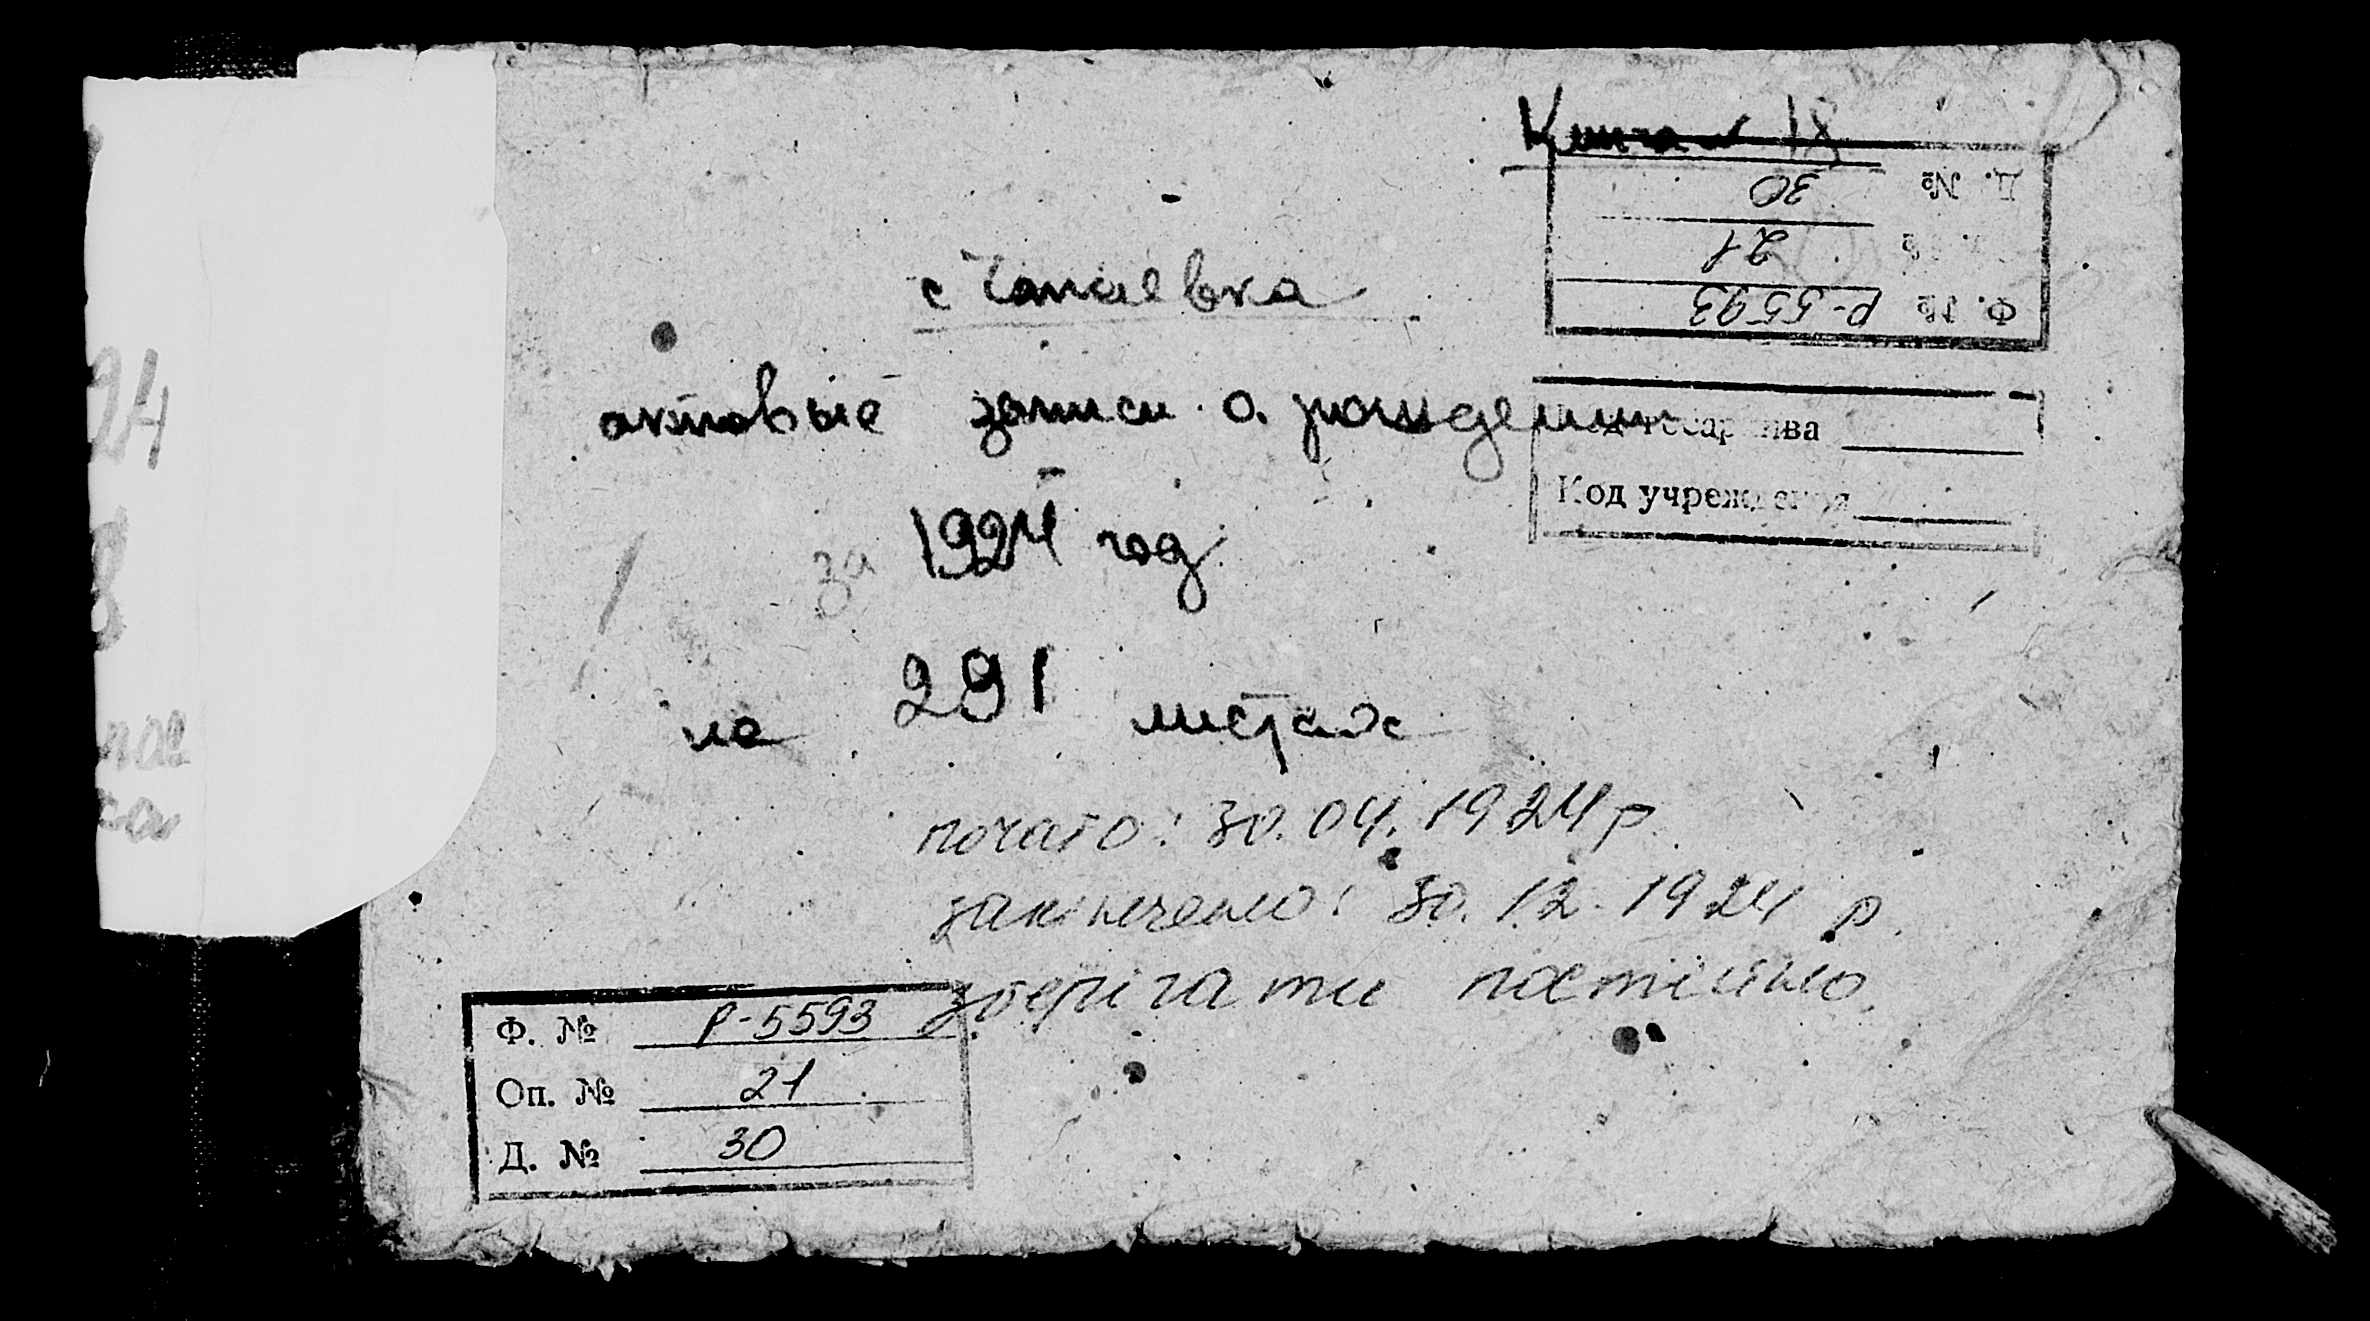 Книга № 18
Д. № 30
21
Ф. № Р-5593
с Чапаевка
актовые записи о рождении
Код госархива
за 1924 год
Код учреждения
на 291 листах
почато: 30.04.1924 р.
закінчено: 30.12.1924 р.
зберігати постійно.
Ф. № Р-5593
Оп. № 21
Д. № 30